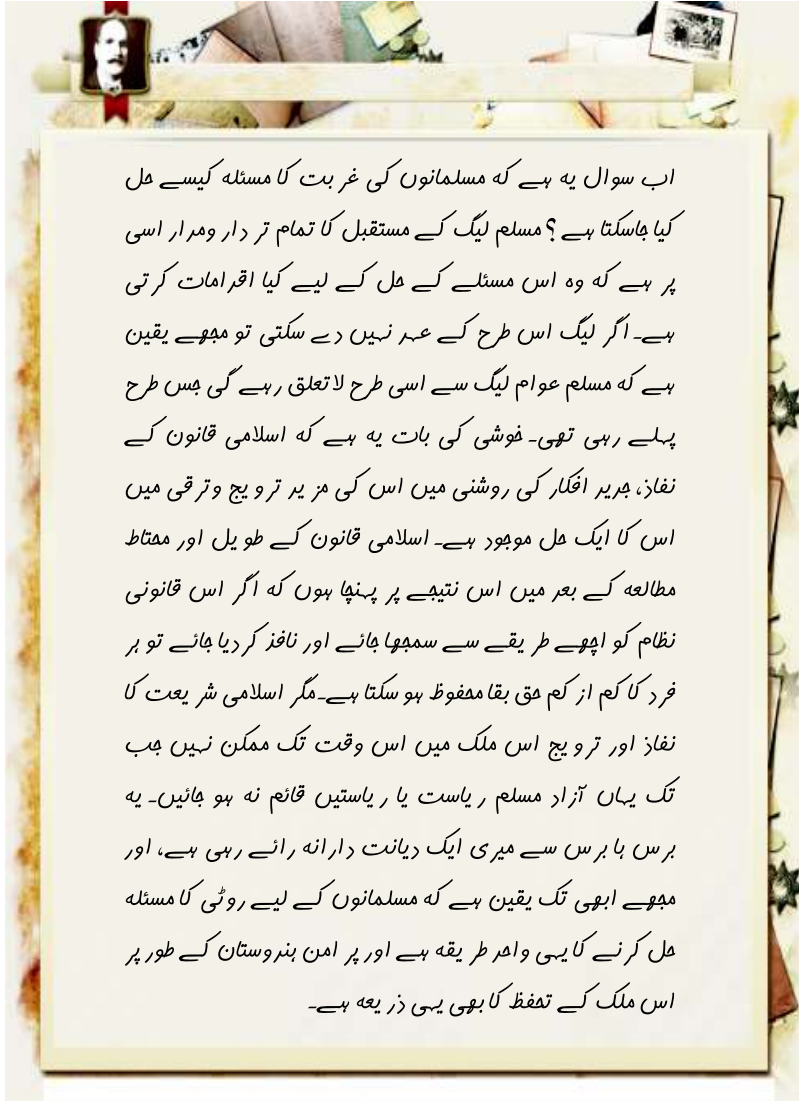 اب سوال یہ ہے کہ مسلمانوں کی غربت کا مسئلہ کیسے حل
کیا جاسکتا ہے؟ مسلم لیگ کے مستقبل کا تمام تر دار ومدار اسی
پر ہے کہ وہ اس مسئلے کے حل کے لیے کیا اقدامات کرتی
ہے۔ اگر لیگ اس طرح کے عہد نہیں دے سکتی تو مجھے یقین
ہے کہ مسلم عوام لیگ سے اسی طرح لاتعلق رہے گی جس طرح
پہلے رہی تھی۔ خوشی کی بات یہ ہے کہ اسلامی قانون کے
نفاذ، جدید افکار کی روشنی میں اس کی مزید ترویج وترقی میں
اس کا ایک حل موجود ہے۔ اسلامی قانون کے طویل اور محتاط
مطالعہ کے بعد میں اس نتیجے پر پہنچا ہوں کہ اگر اس قانونی
نظام کو اچھے طریقے سے سمجھا جائے اور نافذ کردیا جائے تو ہر
فرد کا کم از کم حق بقا محفوظ ہو سکتا ہے۔ مگر اسلامی شریعت کا
نفاذ اور ترویج اس ملک میں اس وقت تک ممکن نہیں جب
تک یہاں آزاد مسلم ریاست یا ریاستیں قائم نہ ہو جائیں۔ یہ
برس ہا برس سے میری ایک دیانت دارانہ رائے رہی ہے، اور
مجھے ابھی تک یقین ہے کہ مسلمانوں کے لیے روٹی کا مسئلہ
حل کرنے کا یہی واحد طریقہ ہے اور پر امن ہندوستان کے طور پر
اس ملک کے تحفظ کا بھی یہی ذریعہ ہے۔